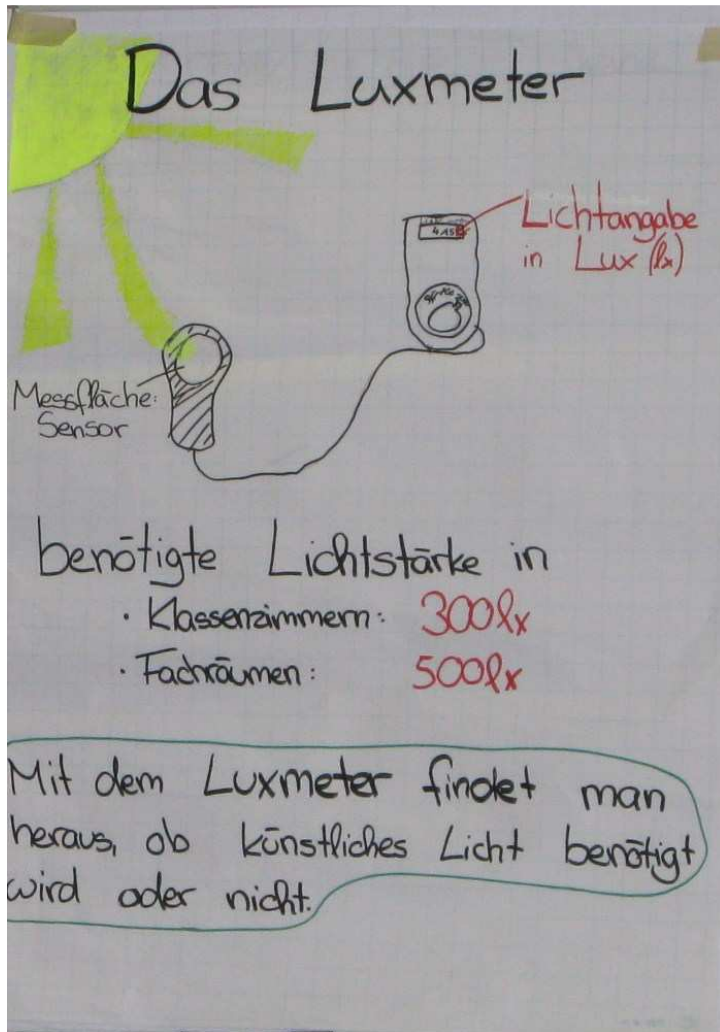 Das Luxmeter
Lichtangabe
in Lux (lx)
Messfläche:
Sensor
benötigte Lichtstärke in
· Klassenzimmern: 300lx
· Fachräumen: 500lx
Mit dem Luxmeter findet man
heraus, ob künstliches Licht benötigt
wird oder nicht.